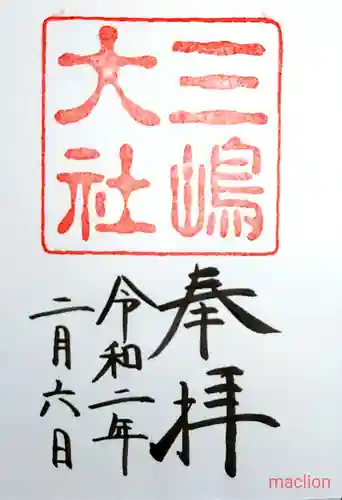 三嶋
大社
奉拝
令和二年
二月六日
maclion